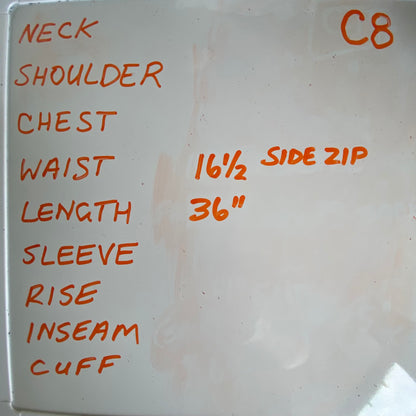 C8
NECK
SHOULDER
CHEST
WAIST 16½ SIDE ZIP
LENGTH 36"
SLEEVE
RISE
INSEAM
CUFF